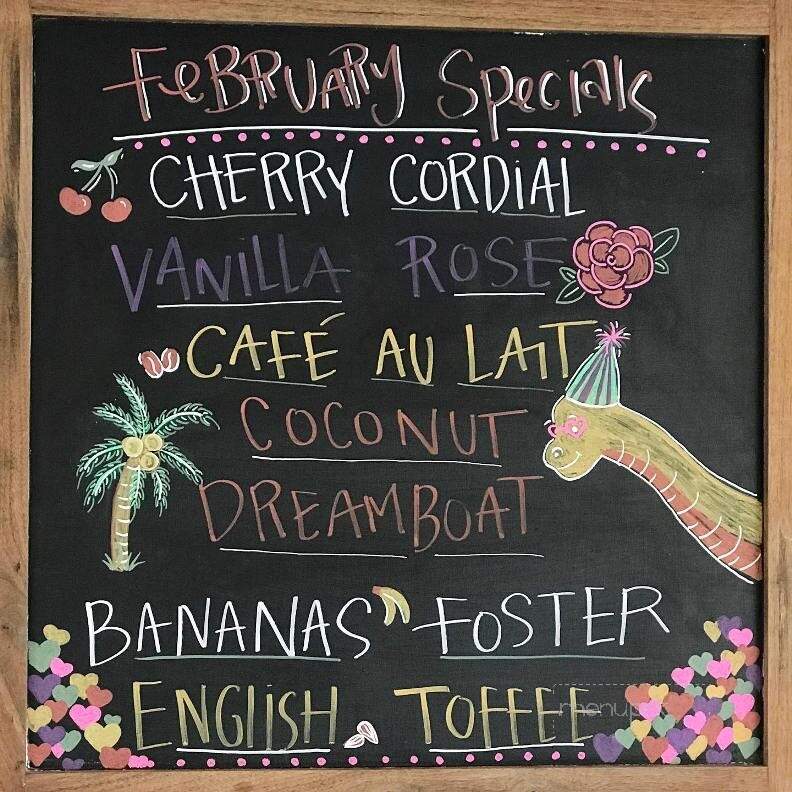 FeBRUARY Specials
CHERRY CORDiAL
VANiLLA ROSE
CAFÉ AU LAiT
COCONUT
DREAMBOAT
BANANAS FOSTER
ENGLiSH TOFFEE